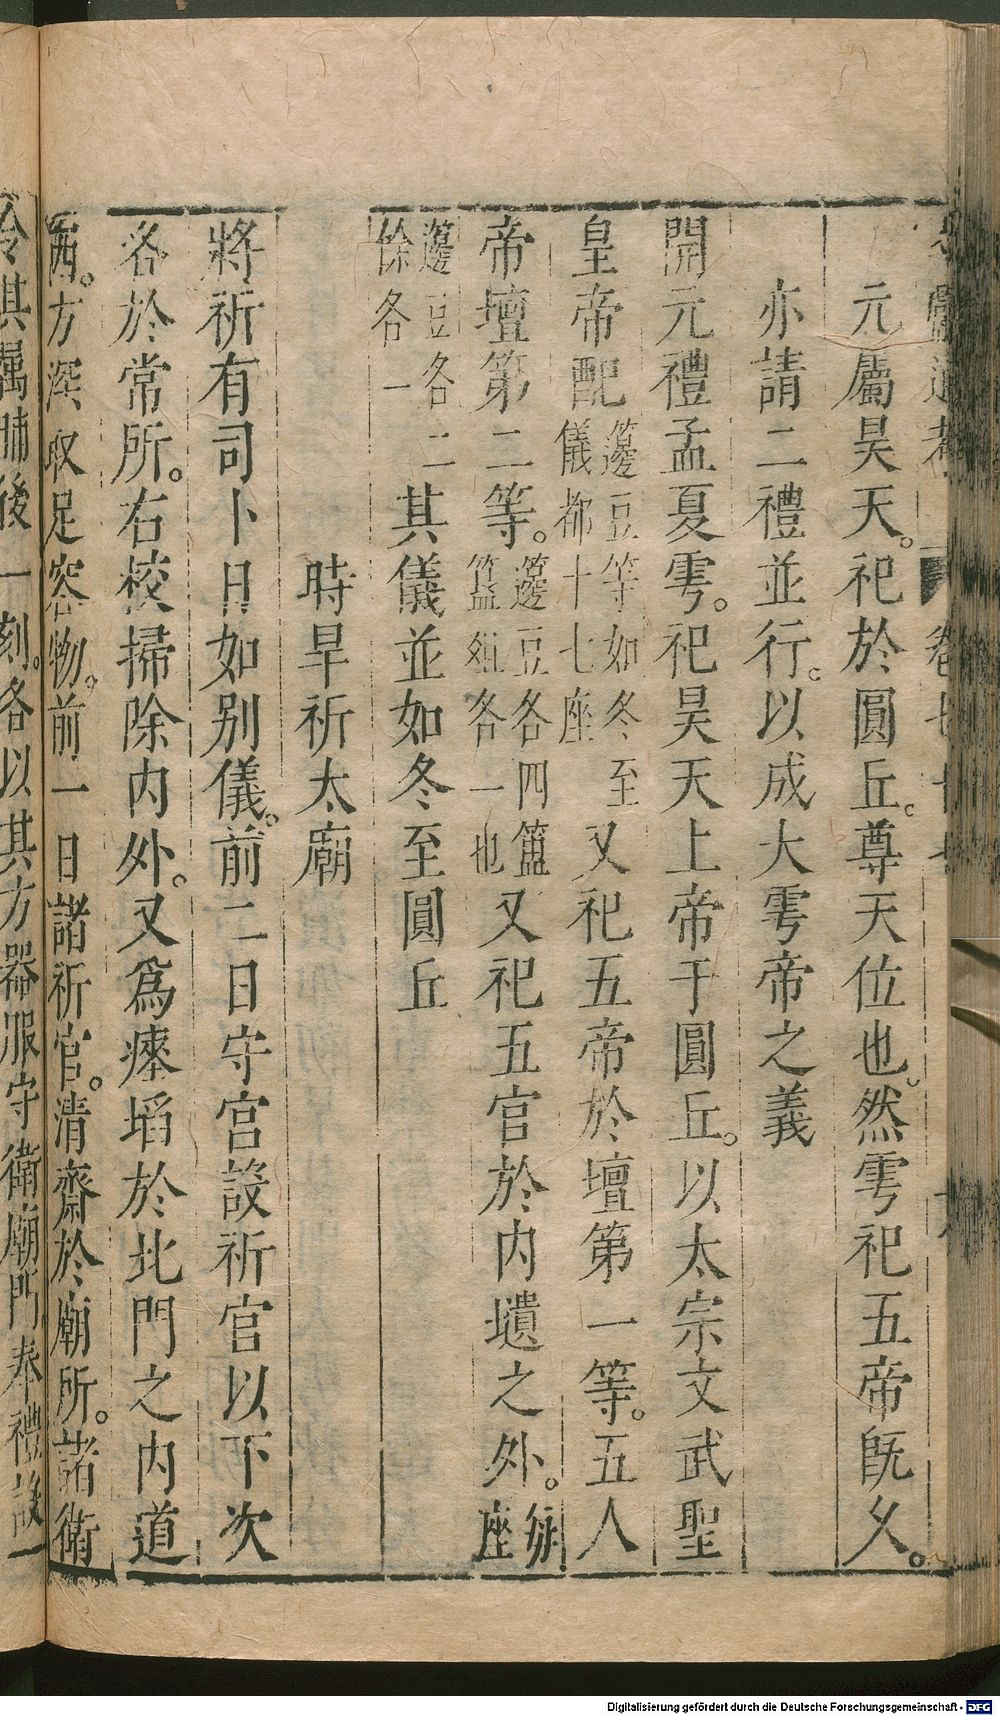 元屬昊天。祀於圓丘。尊天位也。然雩祀五帝旣久。
亦請二禮並行。以成大雩帝之義
開元禮孟夏雩。祀昊天上帝于圓丘。以太宗文武聖
皇帝配籩豆等如冬至儀都十七座又祀五帝於壇第一等。五人
帝壇第二等。籩豆各四簠簋俎各一也又祀五官於內壝之外。每座
籩豆各二餘各一其儀並如冬至圓丘
時旱祈太廟
將祈有司卜日如别儀。前二日守宮設祈官以下次
各於常所。右校掃除內外。又爲瘞埳於北門之內道
西。方深取足容物。前一日諸祈官。清齋於廟所。諸衛
令其屬晡後一刻。各以其方器服守衛廟門奉禮設
Digitalisierung gefördert durch die Deutsche Forschungsgemeinschaft - DFG